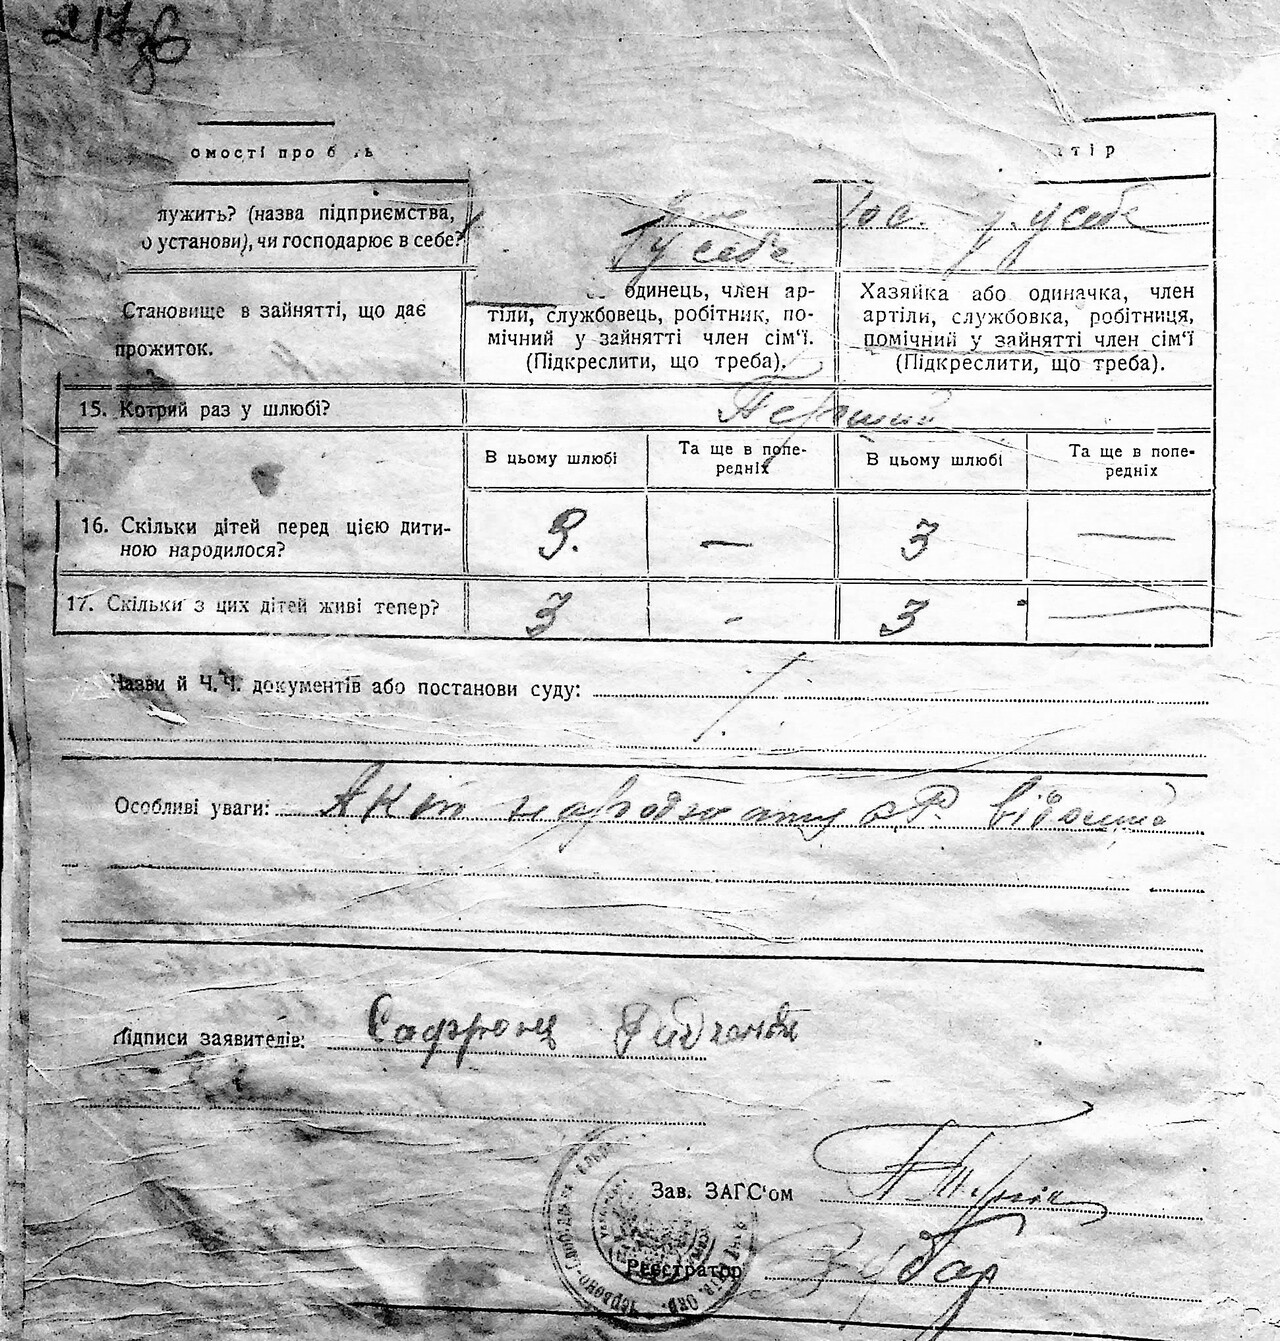 217 зб
омості про б тір
лужить? (назва підприємства,
о установи), чи господарює в себе?
у себе
р. у себе
Становище в зайнятті, що дає
прожиток.
одинець, член ар-
тілі, службовець, робітник, по-
мічний у зайнятті член сім'ї.
(Підкреслити, що треба).
Хазяйка або одиначка, член
артілі, службовка, робітниця,
помічний у зайнятті член сім'ї
(Підкреслити, що треба).
15. Котрий раз у шлюбі? Перший
В цьому шлюбі Та ще в попе-
редніх В цьому шлюбі Та ще в попе-
редніх
16. Скільки дітей перед цією дити-
ною народилося? 3. — 3 —
17. Скільки з цих дітей живі тепер? 3 - 3 —
Назви й Ч.Ч. документів або постанови суду:
Особливі уваги: Акт
Підписи заявителів: Сафрон
Зав. ЗАГС'ом
Реєстратор Зубар